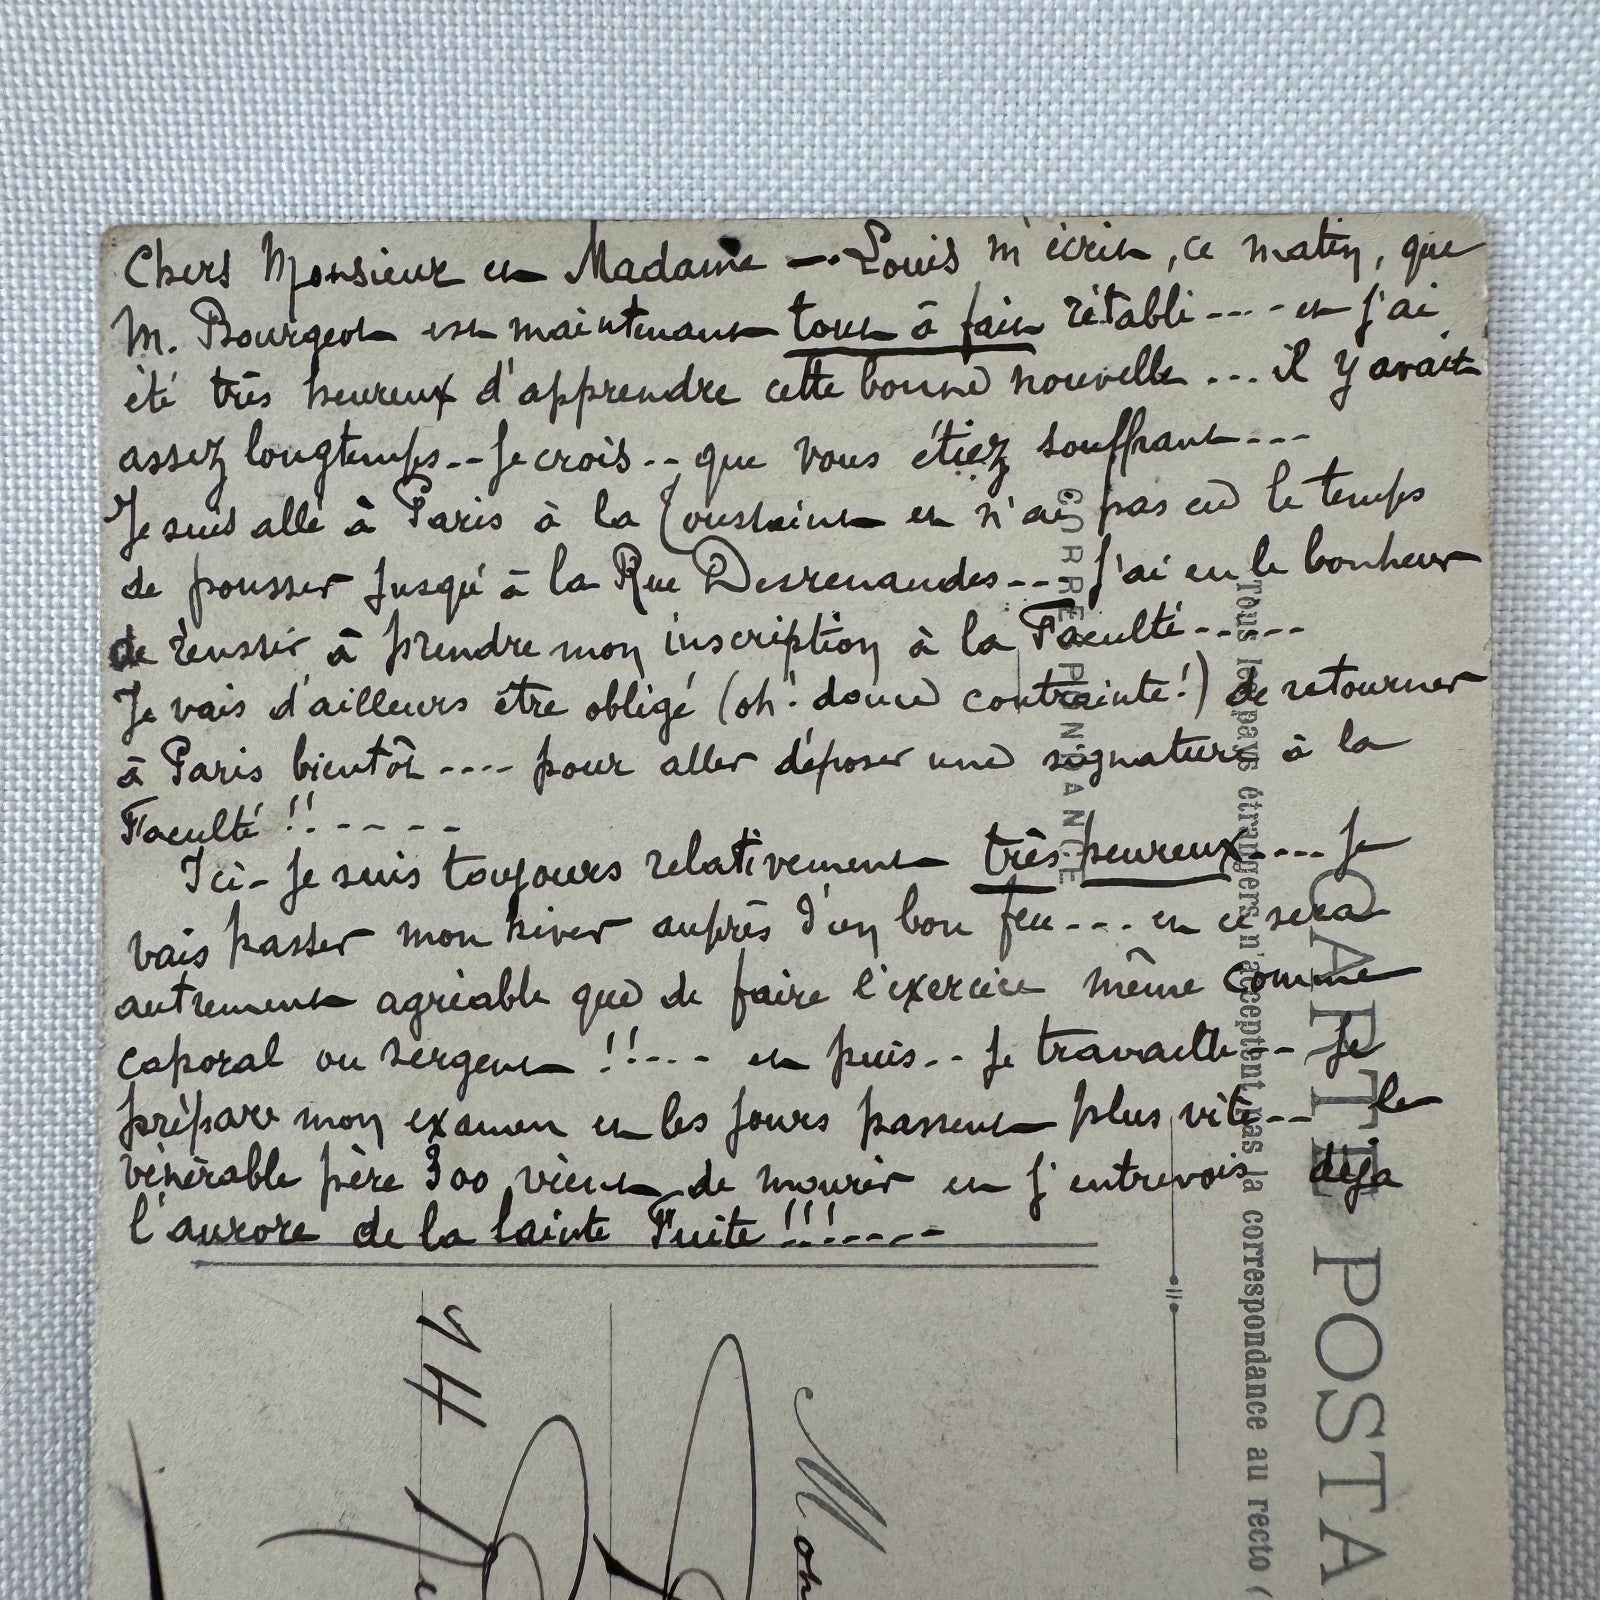 Chers Monsieur et Madame — Louis m'écrit, ce matin, que
M. Bourgeot est maintenant tout à fait rétabli .... et j'ai
été très heureux d'apprendre cette bonne nouvelle ... il y avait
assez longtemps .. je crois .. que vous étiez souffrant ...
Je suis allé à Paris à la Toussaint et n'ai pas eu le temps
de pousser jusqu'à la Rue Desrenaudes ... J'ai eu le bonheur
de réussir à prendre mon inscription à la Faculté .....
Je vais d'ailleurs être obligé (oh! douce contrainte!) de retourner
à Paris bientôt .... pour aller déposer une signature à la
Faculté !! .....
Ici - je suis toujours relativement très heureux .... Je
vais passer mon hiver auprès d'un bon feu ... et ce sera
autrement agréable que de faire l'exercice même comme
caporal ou sergent !! ... et puis .. je travaille .. Je
prépare mon examen et les jours passent plus vite ... le
vénérable père 300 vient de mourir et j'entrevois déjà
l'aurore de la sainte Fuite !!! ....
CORRESPONDANCE
Tous les pays étrangers n'acceptent pas la correspondance au recto (
CARTE POSTA
Mon
14